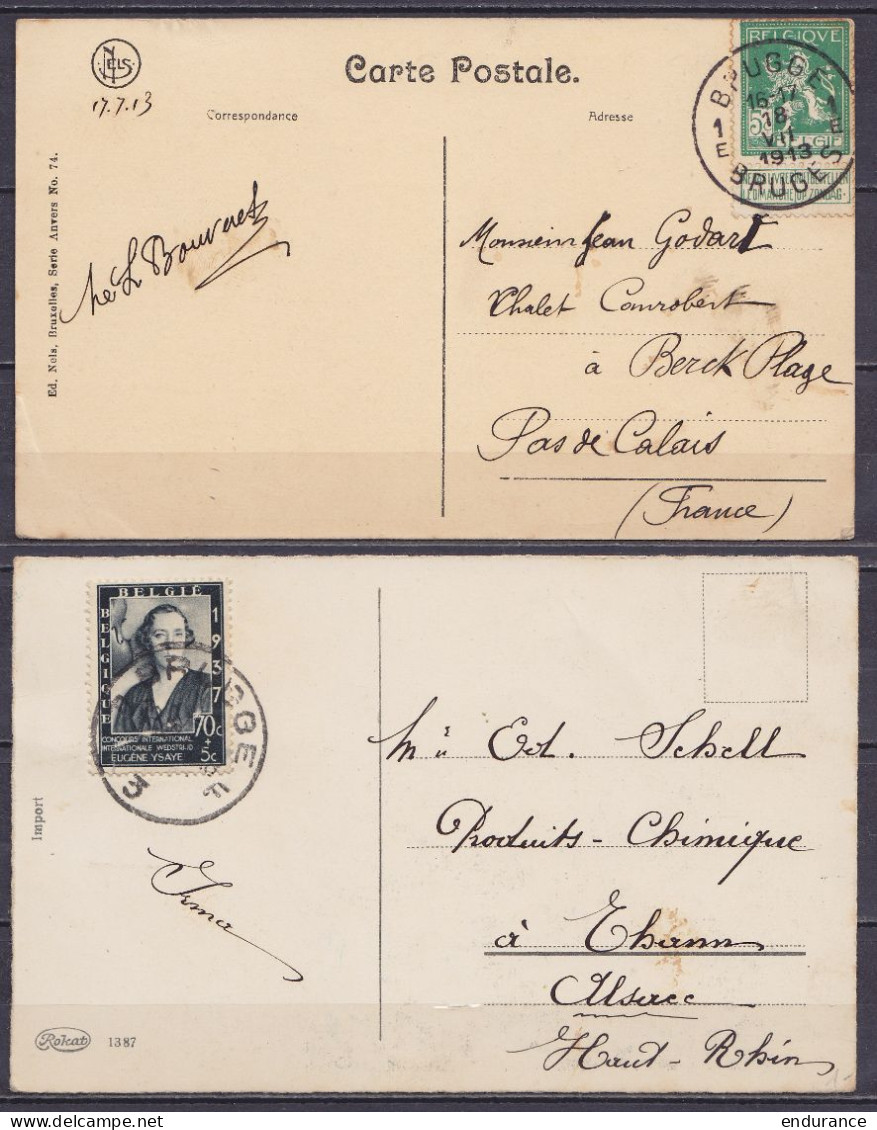 NELS
17.7.13
Carte Postale.
Correspondance
Adresse
BELGIQVE
5
BELGIË
NE PAS LIVRER LE DIMANCHE
NIET BESTELLEN OP ZONDAG
BRUGGE
1 E
16-17
18
VII
1913
1 E
BRUGES
Ed. Nels, Bruxelles, Serie Anvers No. 74.
Monsieur Jean Godart
Chalet Canrobert
à Berck Plage
Pas de Calais
(France)
BELGIË
BELGIQUE
1937
70c
+5c
CONCOURS INTERNATIONAL
INTERNATIONALE WEDSTRIJD
EUGÈNE YSAYE
BRUGGE
3
F
Import
Irma
Rokat 1387
Ed. Schell
Produits-Chimique
à Thann
Alsace
Haut-Rhin
endurance